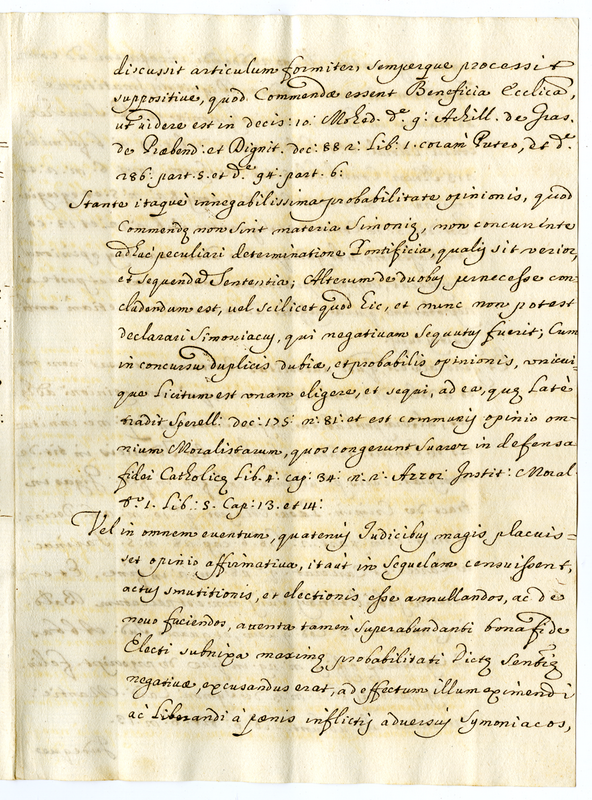 discussit articulum formiter, semperque processit
suppositivè, quod Commendæ essent Beneficia Ecclica,
ut videre est in decis: 10: Mohed. de 9: Achill. de Gras.
de Præbend: et Dignit. dec: 88 2: Lib: 1. coram Puteo, et de.
286: part. 5. et de 94. part. 6:
Stante itaque innegabilissima probabilitate opinionis, quod
Commendę non sint materia Simonię, non concurrente
adhuc peculiari determinatione Pontificia, qualis sit verior,
et sequenda Sententia; Alterum de duobus necesse con
cludendum est, vel scilicet quod hic, et nunc non potest
declarari Simoniacus, qui negativam sequutus fuerit; Cum
in concursu duplicis dubiæ, et probabilis opinionis, unicui-
que Licitum est unam eligere, et sequi, ad ea, quę Latè
tradit Sperell: dec: 175: n: 81: et est communis opinio om
nium Moralistarum, quos congerunt Suarez in defensa
fidei Catholicę Lib. 4: cap: 34: n: 2: Azzor Instit: Moral.
1. Lib: 5. Cap: 13. et 14:
Vel in omnem eventum, quatenus Iudicibus magis placuis=
set opinio affirmativa, ita ut in sequelam censuissent,
actus mutitionis, et electionis esse annullandos, ac de
novo faciendos, attenta tamen superabundanti bona fide
Electi subnixa maximę probabilitati Dictę Sentię
negativæ, excusandus erat, ad effectum illum eximendi
ac Liberandi à pœnis inflictis adversus Symoniacos,